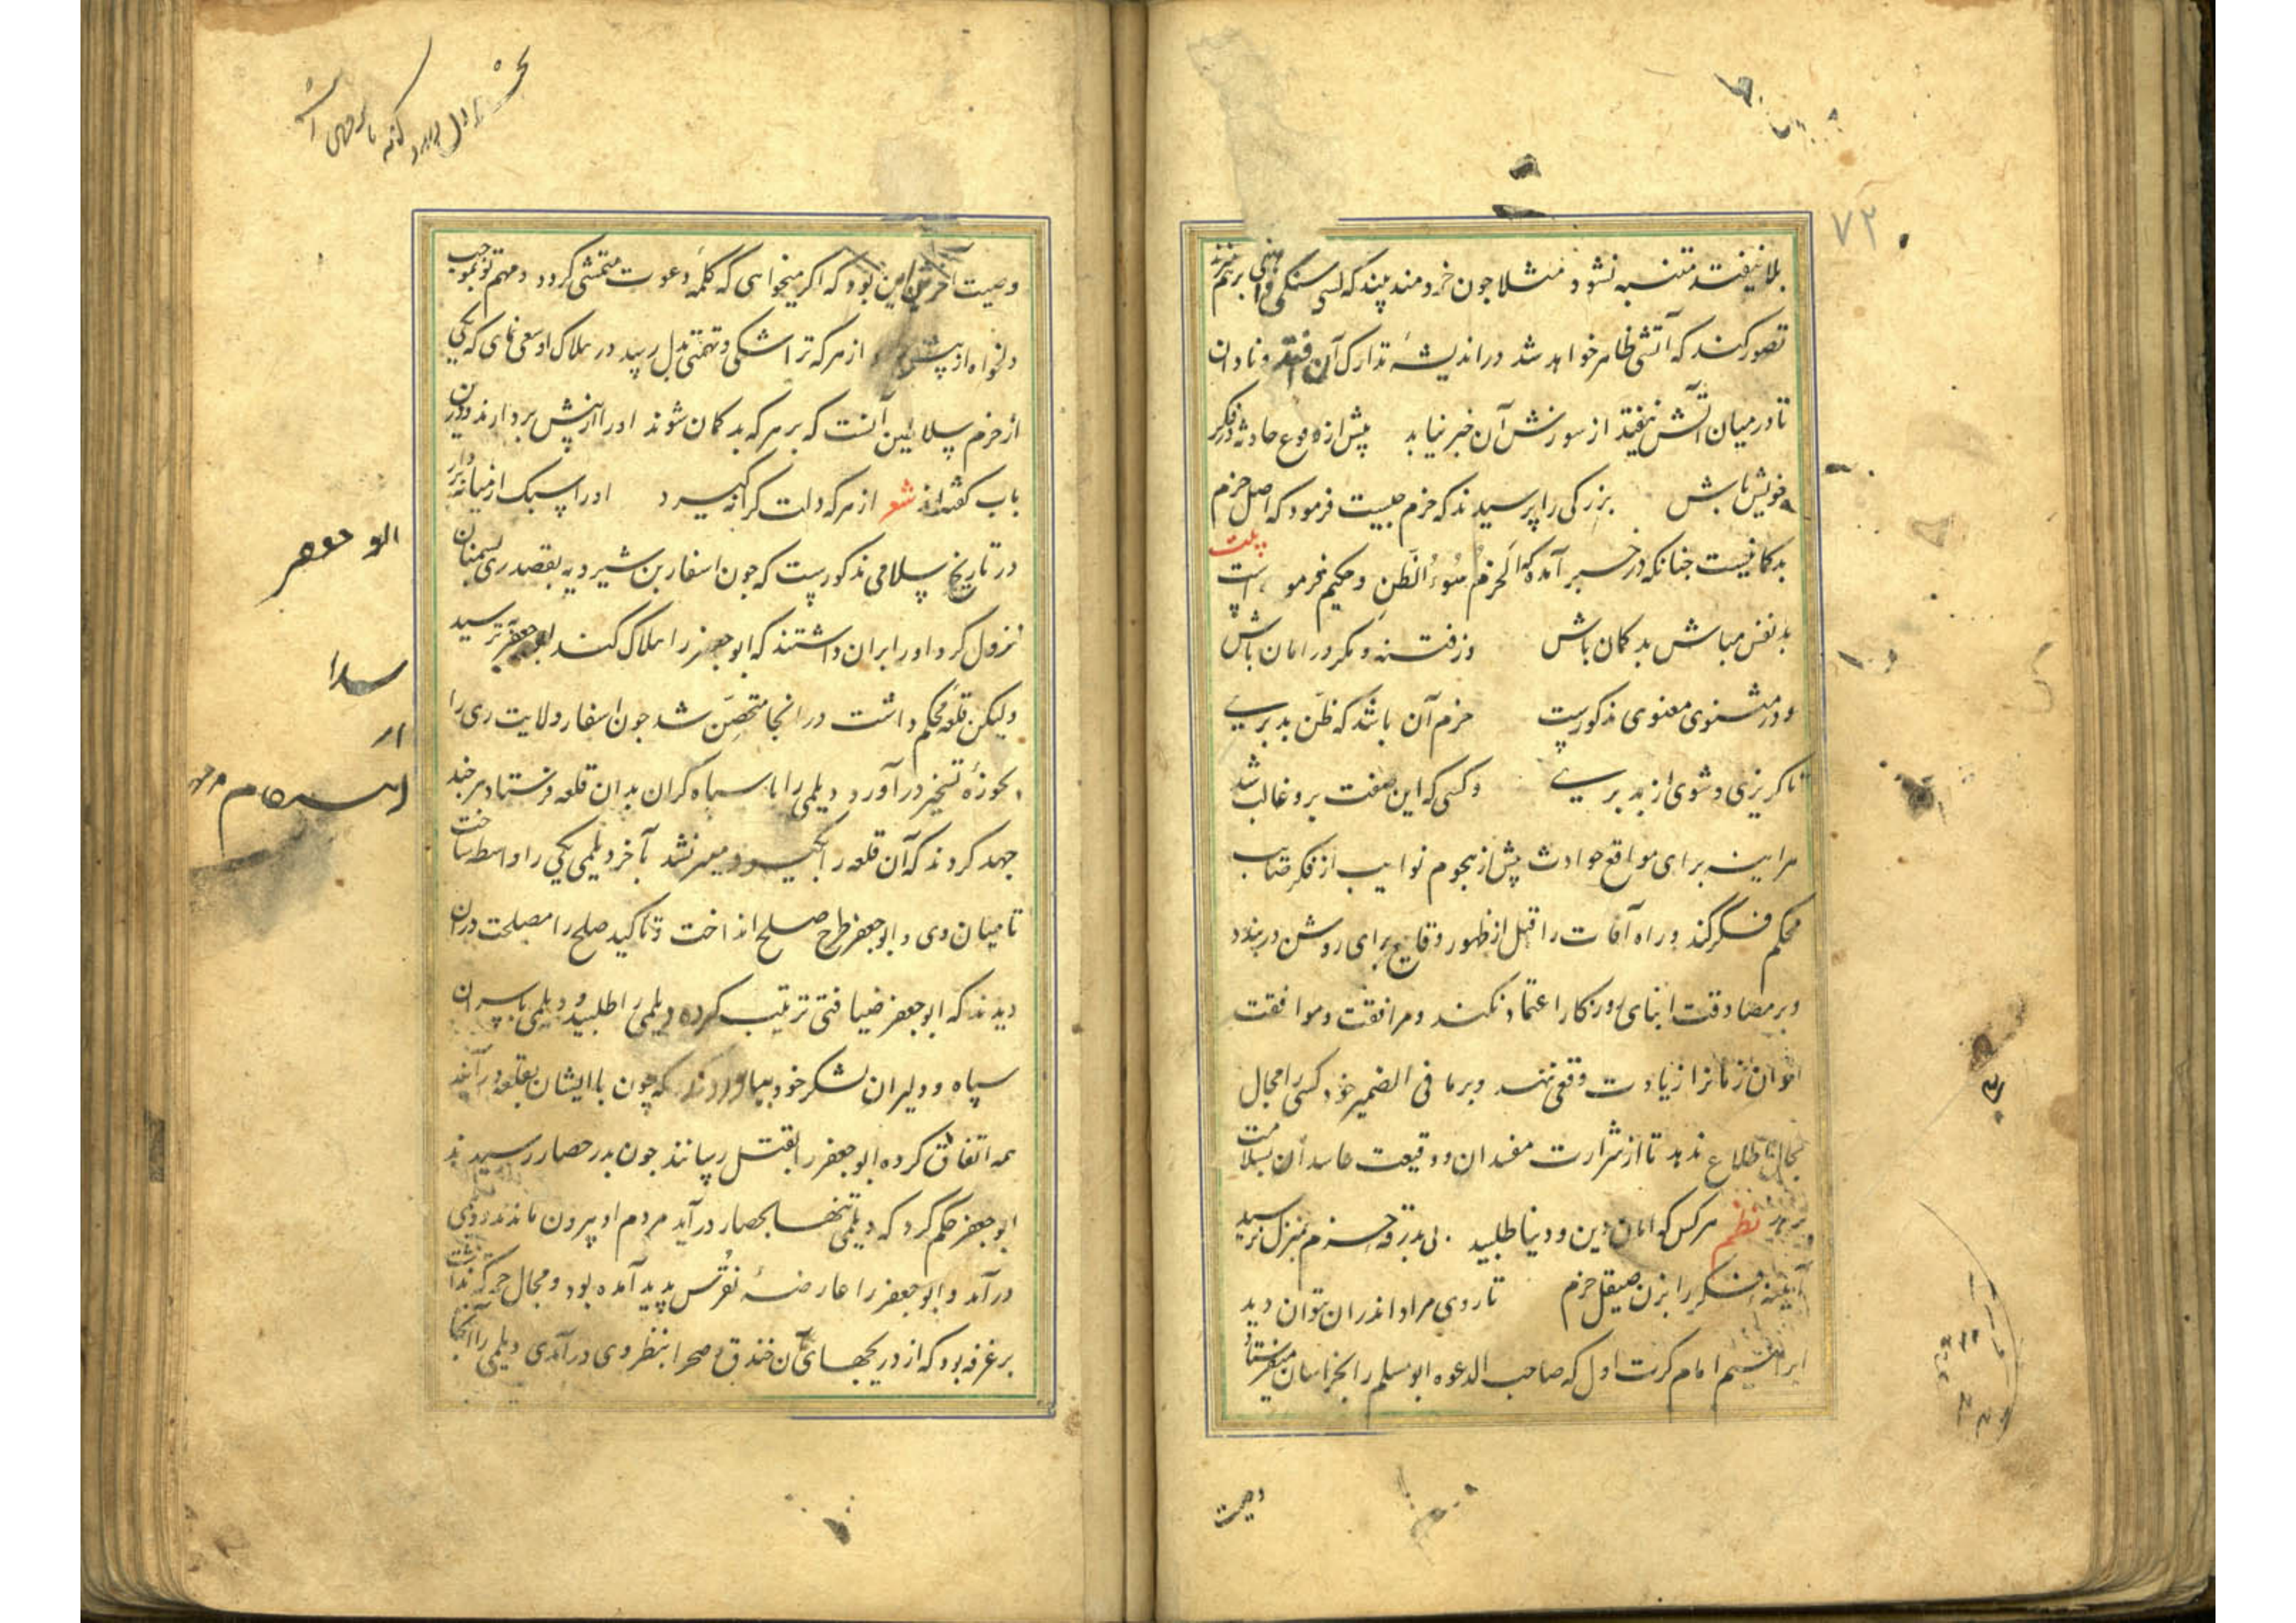 ۷۲
بلا نیفتد متنبه نشود مثلا چون خردمند بیند که کسی سنگی و آهنی برهم میزند
تصور کند که آتشی ظاهر خواهد شد در اندیشهٔ تدارک آن افتد و نادان
تا در میان آتش نیفتد از سوزش آن خبر نیابد پیش از وقوع حادثه در فکر
خویش باش بزرکی را پرسیدند که حزم چیست فرمود که اصل حزم
بدکمانیست چنانکه در خبر آمده که الحزم سُوءُ الظَنِ و حکیم فرموده است بیت
بدنفس مباش بدکمان باش وز فتنه و مکر در امان باش
و در مثنوی معنوی مذکورست حزم آن باشد که ظن بد بری
تا کریزی و شوی از بد بری و کسی که این صفت برو غالب باشد
هراینه برای مواقع حوادث پیش از هجوم نوایب از فکر صایب
محکم فکر کند و راه آفات را قبل از ظهور وقایع برای روشن دربندد
و بر مصادقت ابنای روزکار اعتماد نکند و مرافقت و موافقت
اخوان زمانرا زیادت وقعی ننهد و بر ما فی الضمیر خود کسی را مجال
مجال اطلاع ندهد تا از شرارت مفسدان و وقیعت حاسدان بسلامت
نظم هر کس که امان دین و دنیا طلبید بی بدرقه حزم بمنزل نرسید
آیینه فکر را بزن صیقل حزم تا روی مراد اندران بتوان دید
ابراهیم امام کرت اول که صاحب الدعوه ابو مسلم را بخراسان میفرستاد
وصیت
وصیت آخرین این بود که اکر میخواهی که کلمهٔ دعوت متمشی کردد و مهم تو بموجب
دلخواه از پیش رود از هر که ترا شکی و تهمتی بدل رسد در هلاک او سعی نمای که یکی
از حزم سلاطین آنست که بر هر که بدکمان شوند او را از پیش بردارند و درین
باب کفته‌اند شعر از هر که دلت کرانه کیرد او را سبک از میانه بردار
در تاریخ سلامی مذکورست که چون اسفار بن شیرویه بقصد ری بسمنان
نزول کرد او را بران داشتند که ابو جعفر را هلاک کند ابو جعفر بترسید
ولیکن قلعهٔ محکم داشت در انجا متحصن شد چون اسفار ولایت ری را
بحوزهٔ تسخیر درآورد دیلمی را با سپاه کران بدان قلعه فرستاد هر چند
جهد کردند که آن قلعه را بکیرد میسر نشد بآخر دیلمی یکی را واسطه ساخت
تا میان وی و ابو جعفر طرح صلح انداخت و تاکید صلح را مصلحت دران
دیدند که ابو جعفر ضیافتی ترتیب کرده دیلمی را طلبید و دیلمی با سران
سپاه و دلیران لشکر خود بیاوردند که چون با ایشان بقلعه درآیند
همه اتفاق کرده ابو جعفر را بقتل رسانند چون بدر حصار رسیدند
ابو جعفر حکم کرد که دیلمی تنها بحصار درآید مردم او بیرون ماندند دیلمی
درآمد و ابو جعفر را عارضهٔ نقرس پدید آمده بود و مجال حرکت نداشت
بر غرفه بود که از دریچهای آن خندق و صحرا بنظر وی درآمدی دیلمی را آنجا
ابو جعفر